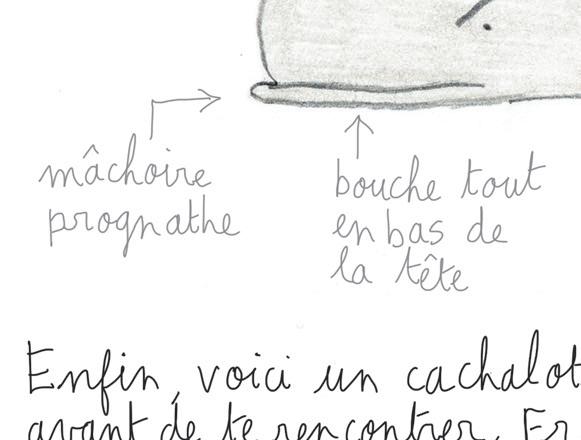 mâchoire
prognathe
bouche tout
en bas de
la tête
Enfin, voici un cachalot
avant de te rencontrer. Er